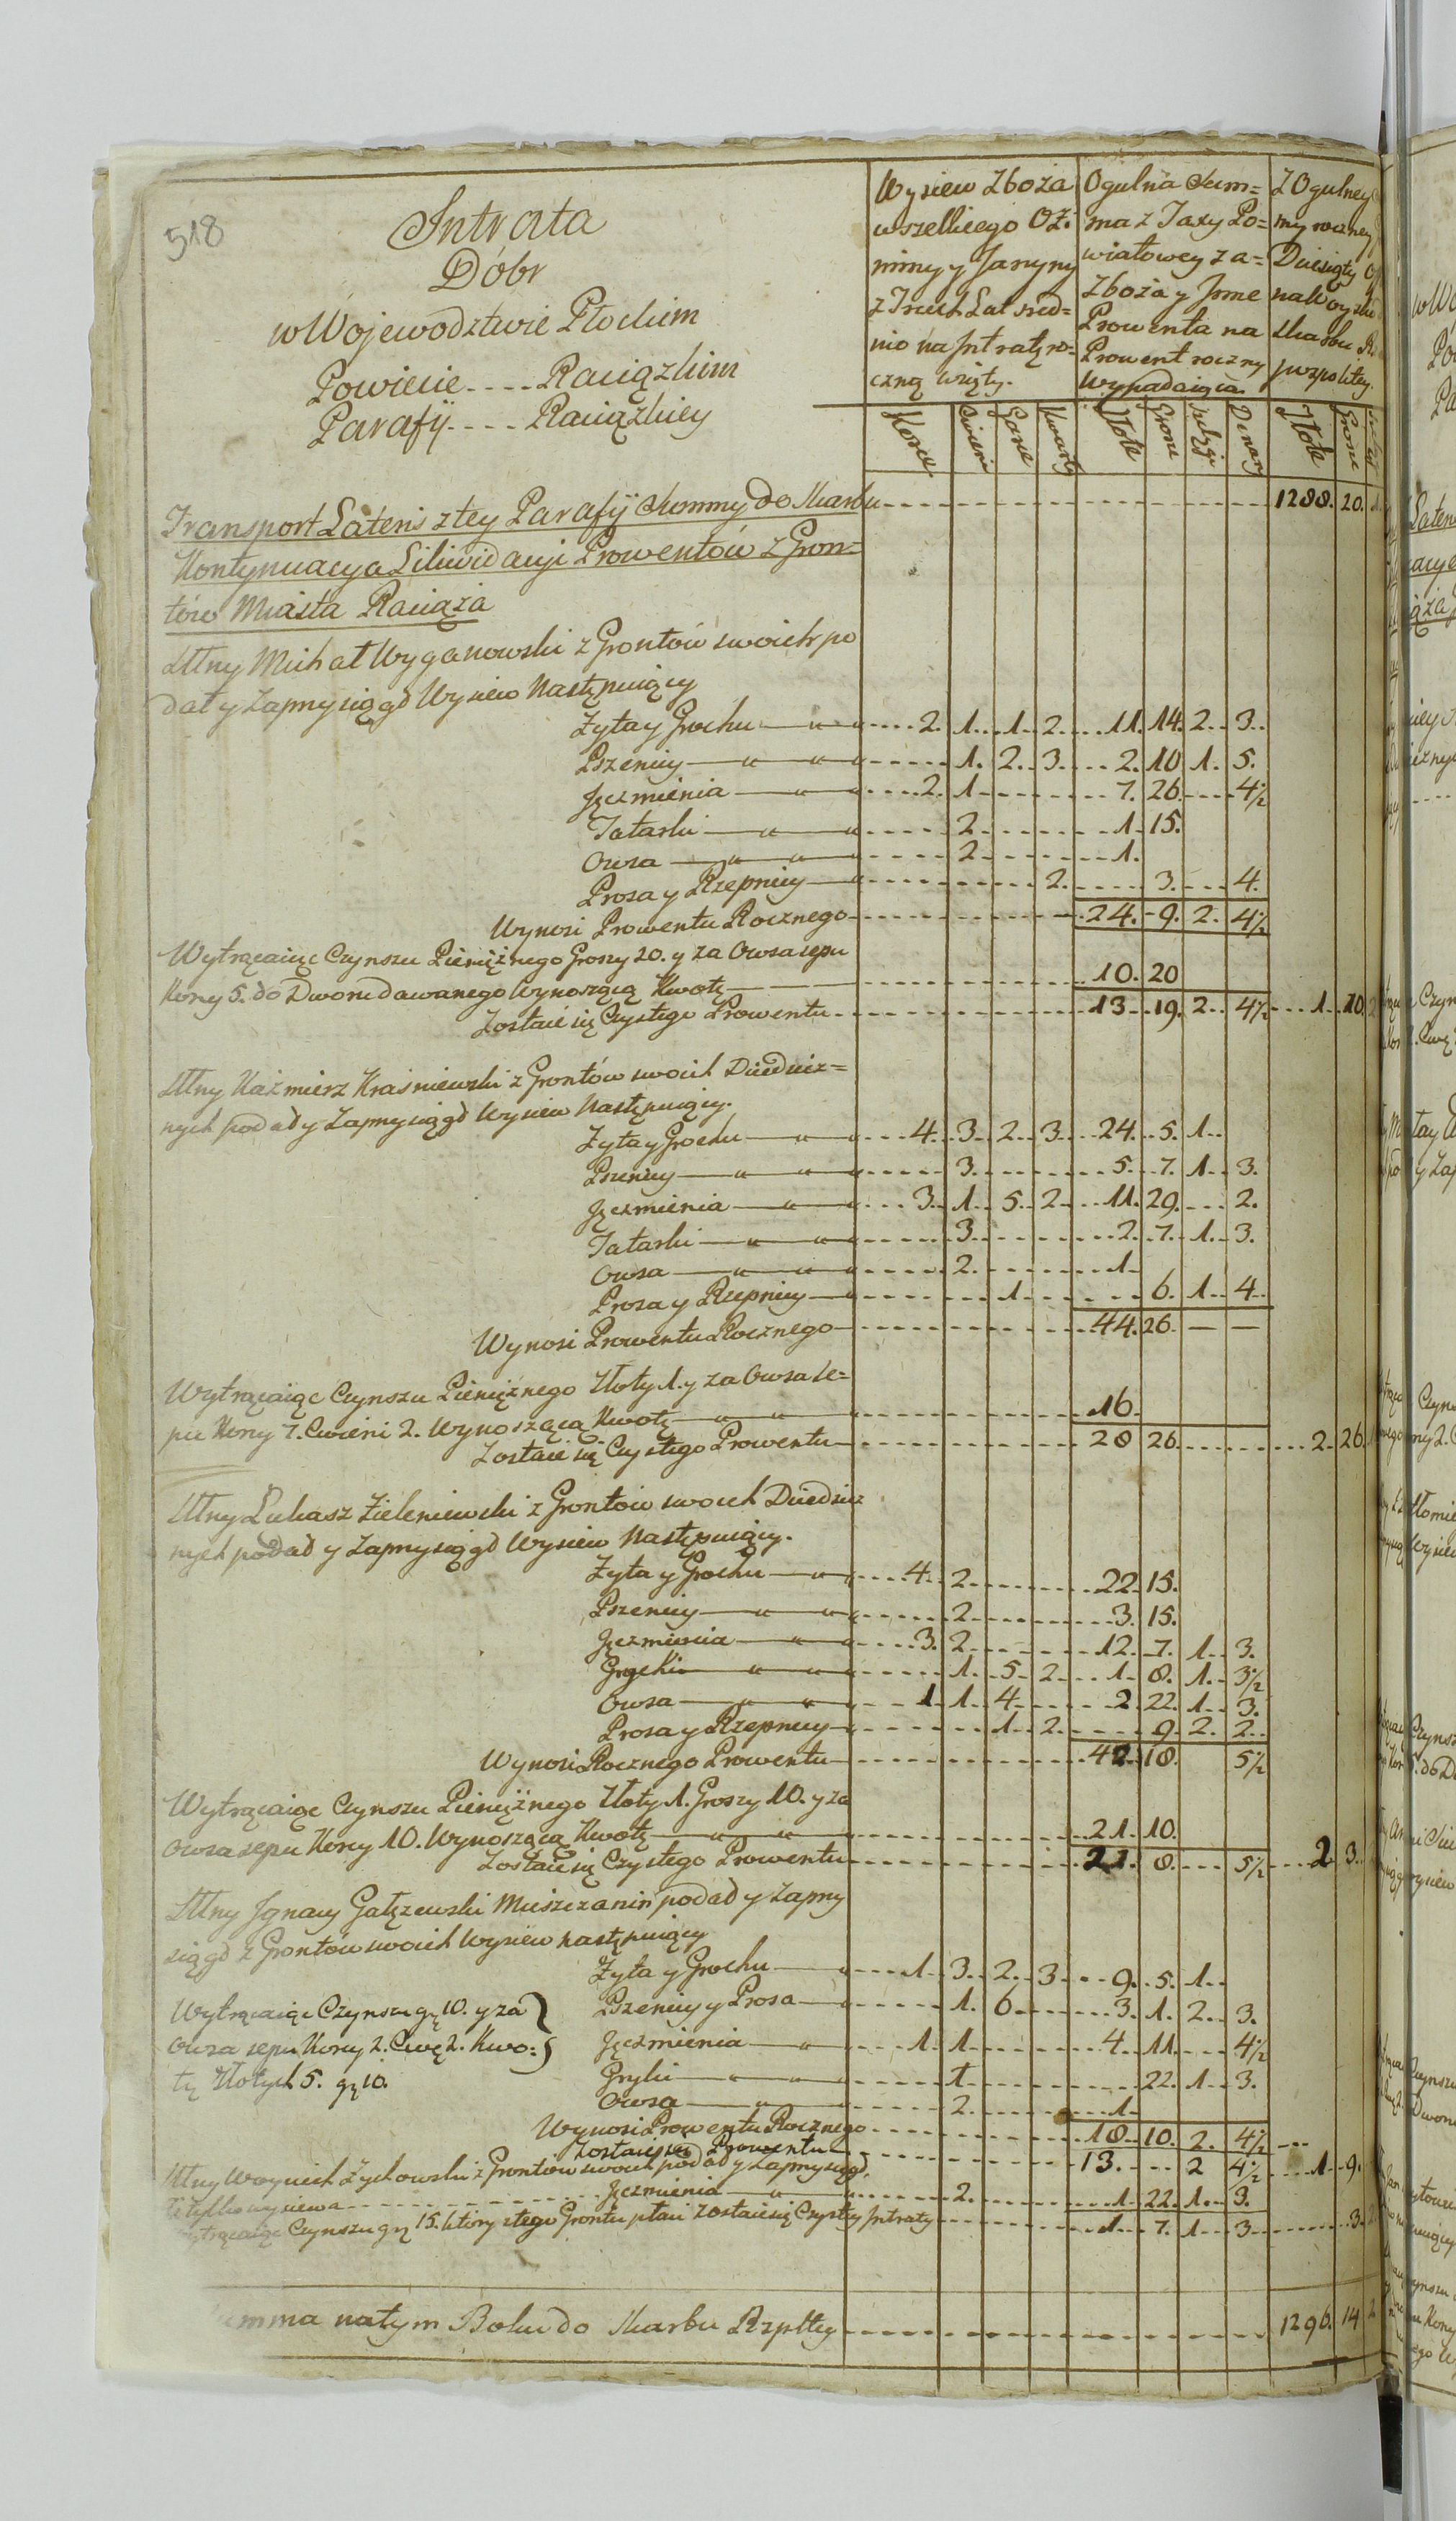 518
Intrata
Dobr
w Wojewodztwie Płockim
Powiecie .... Raciązkim
Parafÿ .... Raciązkiey
Wysiew Zboża
wszelkiego Ozi-
miny y Jarzyny
z Trzech Lat sred=
nio na Intratę ro=
czną wzięty.
Ogulna Sum=
ma z Taxy Po=
wiatowey za=
Zboża y Inne
Prowenta na
Prowent roczny
Wypadaiąca
Z Ogulney
my roczney
Dziesiąty
na Wyszłe
Skarbu
pospolitey.
Korce Cwierci Garce Kwarty Złote Grosze Szelągi Denary Złote Grosze
Transport Lateris z tey Parafÿ Summy do Skarbu 1288. 20.
Kontynuacya Likwidacyi Prowentów z Gron=
tów Miasta Raciąża
Sttny Michał Wyganowski z Grontów swoich po
dał y Zaprzysiągł Wysiew Następuiący
Zyta y Grochu 2. 1. 1. 2. 11. 14. 2. 3.
Pszenicy 1. 2. 3. 2. 10 1. 5.
Jęczmienia 2. 1 7. 26. 4½
Tatarki 2. 1. 15.
Owsa 2. 1.
Prosa y Rzepnicy 2. 3. 4.
Wynosi Prowentu Rocznego 24. 9. 2. 4½
Wytrącaiąc Czynszu Pieniężnego Groszy 20. y za Owsa sepu
Korcy 5. do Dworu dawanego Wynoszącą Kwotę 10. 20
Zostaie się Czystego Prowentu 13 19. 2. 4½ 1. 10.
Sttny Kaźmierz Kraśniewski z Grontów swoich Dziedzicz=
nych podał y Zaprzysiągł Wysiew Następuiący.
Zyta y Grochu 4. 3. 2. 3. 24. 5. 1.
Pszenicy 3. 5. 7. 1. 3.
Jęczmienia 3. 1. 5. 2. 11. 29. 2.
Tatarki 3. 2. 7. 1. 3.
Owsa 2. 1.
Prosa y Rzepnicy 1. 6. 1. 4.
Wynosi Prowentu Rocznego 44. 26. — —
Wytrącaiąc Czynszu Pieniężnego Złoty 1. y za Owsa se=
pu Korcy 7. Cwierci 2. Wynoszącą Kwotę 16.
Zostaie się Czystego Prowentu 28 26. 2. 26.
Sttny Łukasz Zieleniewski z Grontów swoich Dziedzicz
nych podał y Zaprzysiągł Wysiew Następuiący.
Zyta y Grochu 4. 2. 22. 15.
Pszenicy 2. 3. 15.
Jęczmienia 3. 2. 12. 7. 1. 3.
Gryki 1. 5. 2. 1. 8. 1. 3½
Owsa 1 1. 4. 2 22. 1. 3.
Prosa y Rzepnicy 1. 2. 9. 2. 2.
Wynosi Rocznego Prowentu 42. 18. 5½
Wytrącaiąc Czynszu Pieniężnego Złoty 1. Groszy 10. y za
Owsa sepu Korcy 10. Wynoszącą Kwotę 21. 10.
Zostaie się Czystego Prowentu 21. 8. 5½ 2 3.
Sttny Ignacy Gałęzewski Mieszczanin podał y Zaprzy
siągł z Grontów swoich Wysiew następuiący
Zyta y Grochu 1. 3. 2. 3 9. 5. 1.
Wytrącaiąc Czynszu gr 10. y za
Owsa sepu Korcy 2. Cwę 2. Kwo:
tę Złotych 5. gr 10.
Pszenicy y Prosa 1. 6. 3. 1. 2. 3.
Jęczmienia 1. 1. 4. 11. 4½
Gryki 1. 22. 1. 3.
Owsa 2. 1.
Wynosi Prowentu Rocznego 18. 10. 2. 4½
Zostaie się Prowentu 13. 2 4½ 1. 9.
Sttny Woyciech Zychowski z Grontów swoich podał y Zaprzysiągł,
iż tylko wysiewa Jęczmienia 2. 1. 22. 1. 3.
Wytrącaiąc Czynszu gr 15. który z tego Grontu płaci Zostaie się Czystey Intraty 1. 7. 1. 3 3.
Summa na tym Boku do Skarbu Rzpltey 1296. 14